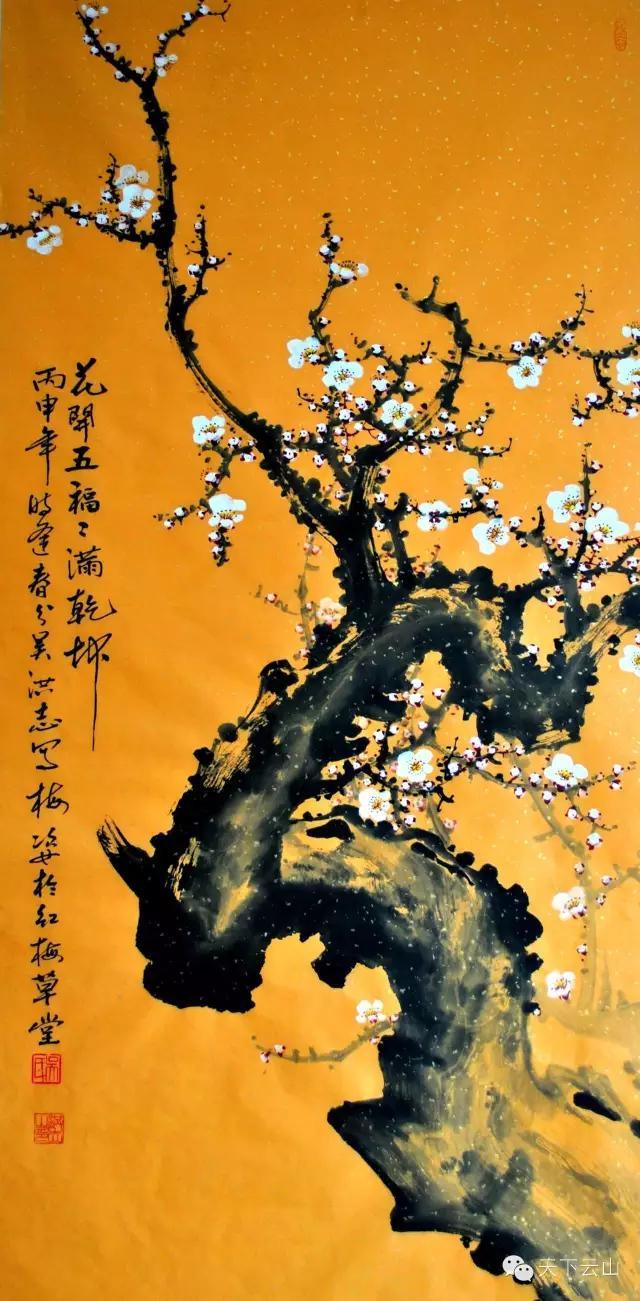 花開五福〻滿乾坤
丙申年時逢春分吴洪志写梅姿於红梅草堂
天下云山